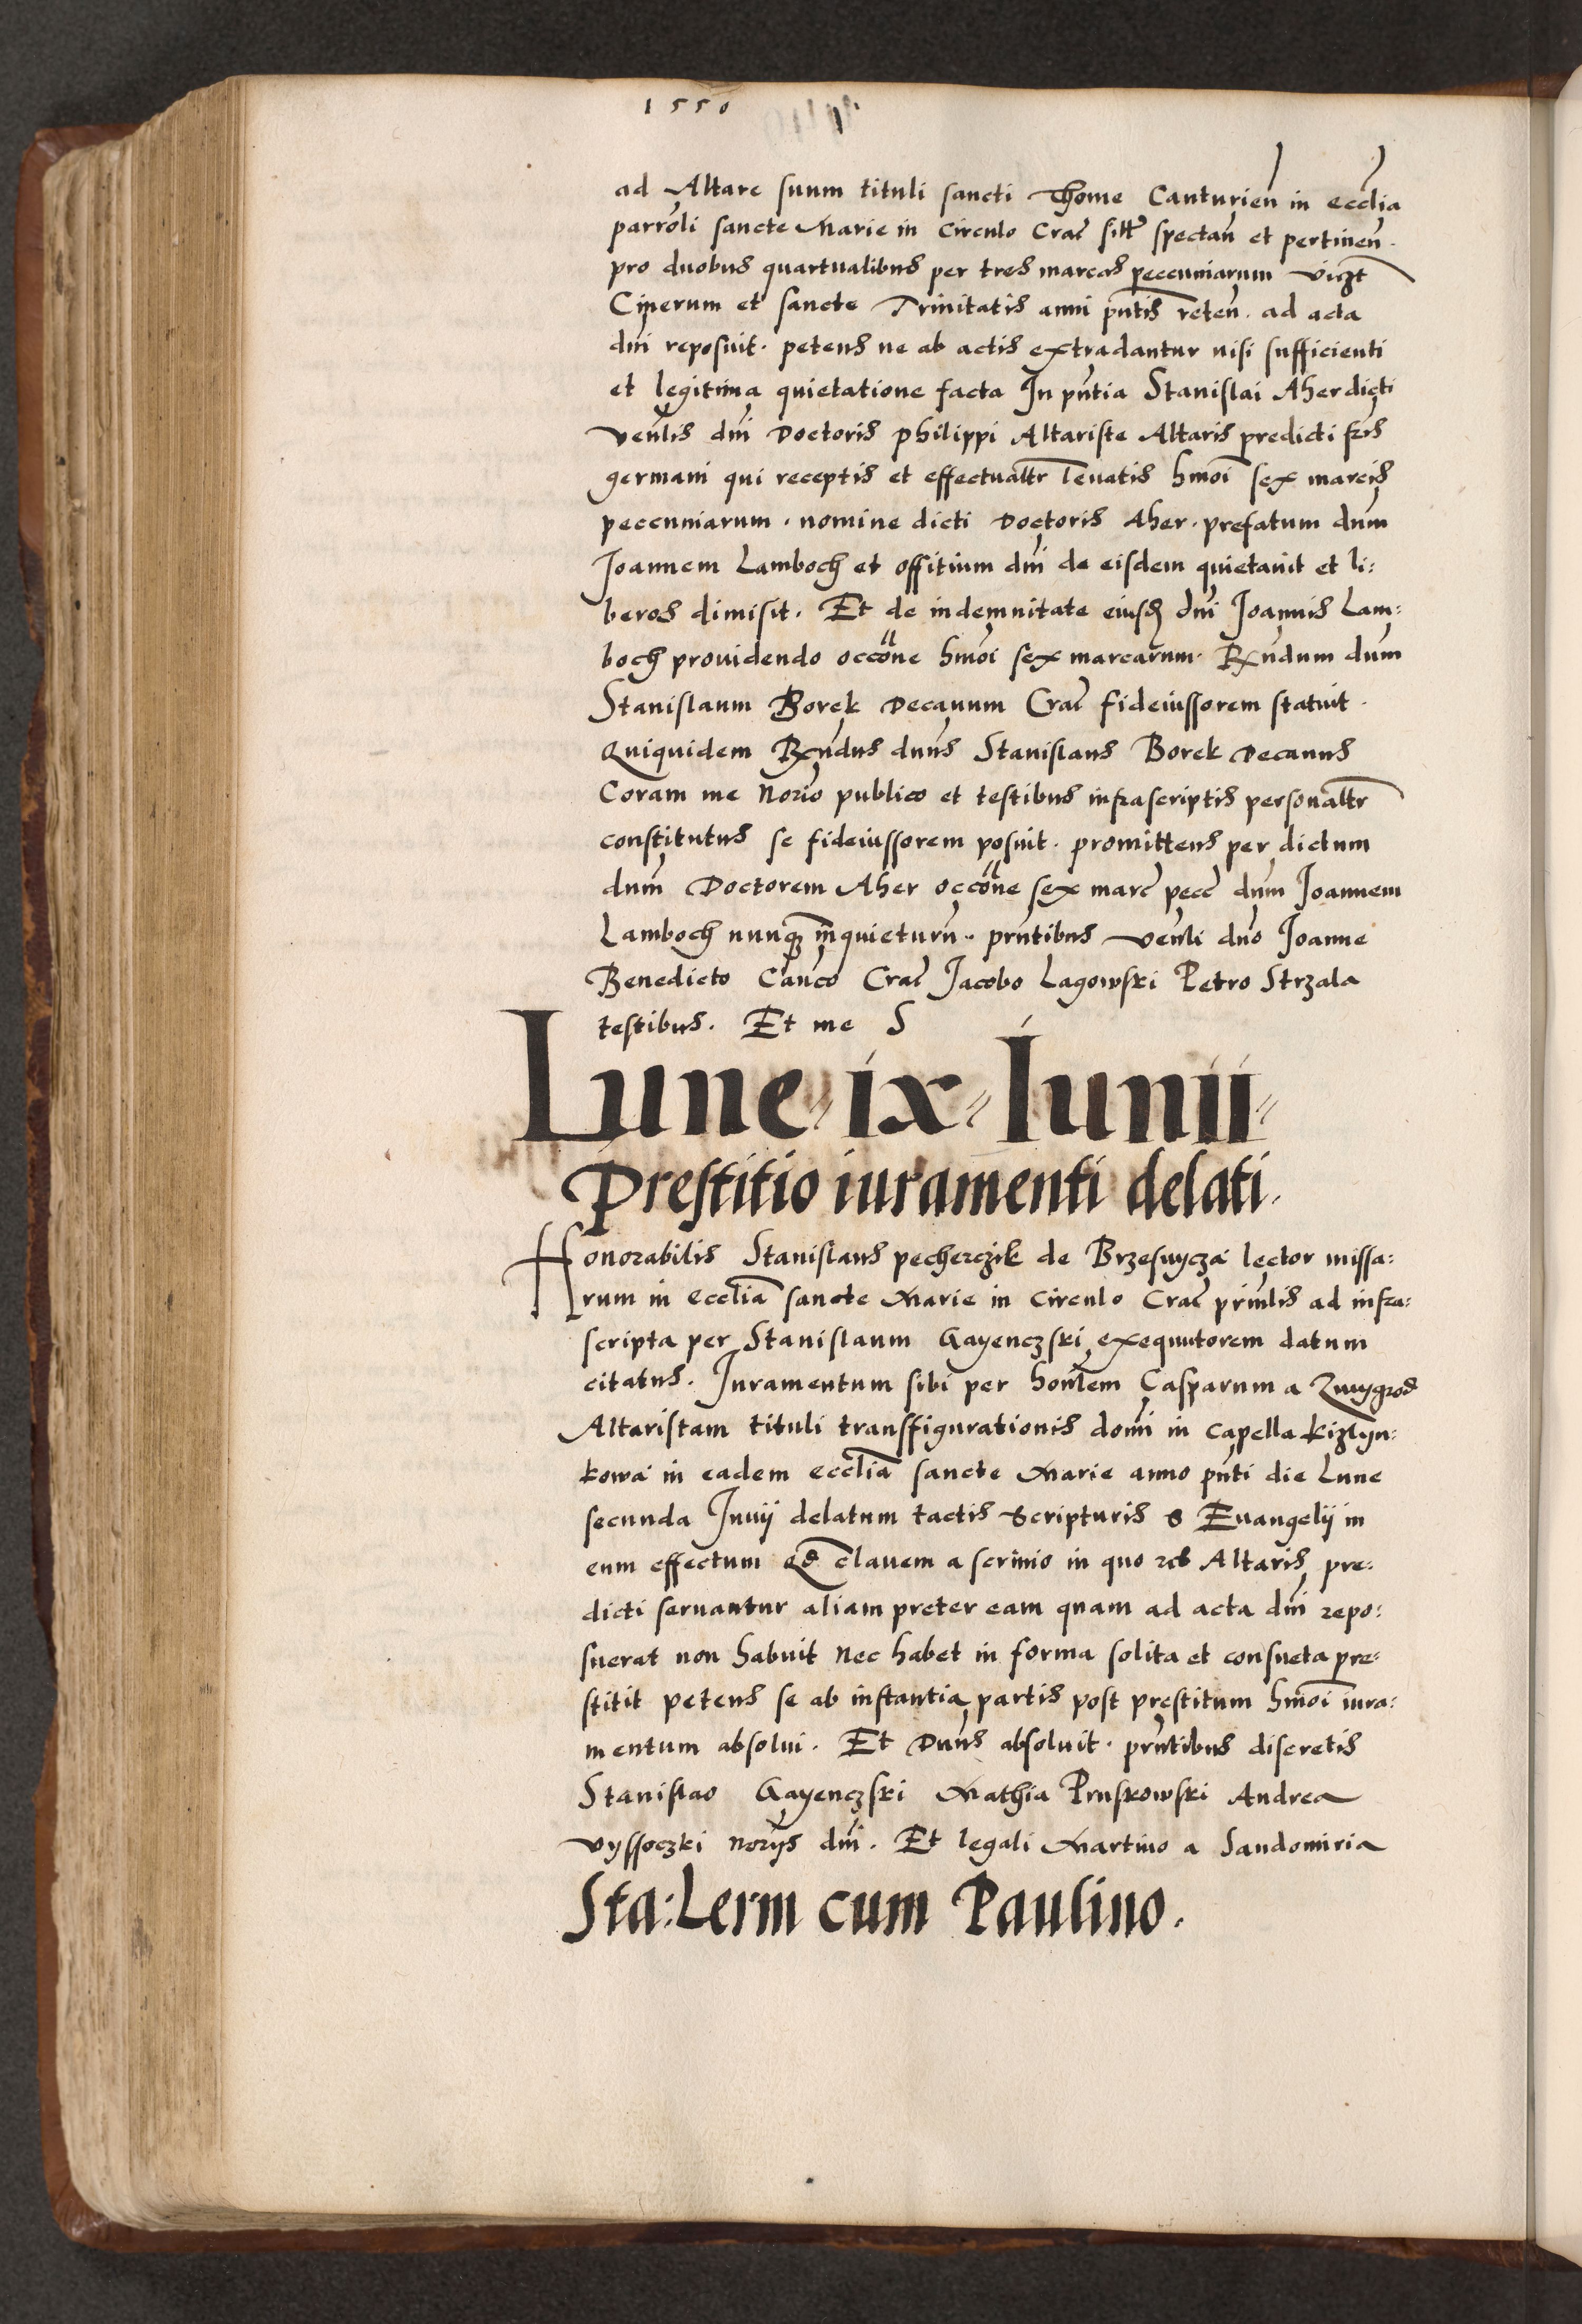 1550
ad Altare suum tituli sancti Thome Canturien̄ in eccĺia
parrōli sancte Marie in Circulo Crac̄ sill̄r spectan̄ et pertinen̄.
pro duobus quartualibus per tres marcas peccuniarum vicz̄t
Cinerum et sancte Trinitatis anni pn̄tis reten̄. ad acta
dn̄i reposuit. petens ne ab actis extradantur nisi sufficienti
et legitima quietatione facta In pn̄tia Stanislai Aher dicti
ven̄lis dn̄i Doctoris Philippi Altariste Altaris predicti fr̄is
germani qui receptis et effectuall̄r leuatis hmōi sex marcis
peccuniarum. nomine dicti Doctoris Aher. prefatum dn̄m
Joannem Lamboch et offitium dn̄i de eisdem quietauit et li:
beros dimisit. Et de indemnitate eiusd dn̄i Joannis Lam:
boch prouidendo occōne hmōi sex marcarum. Rx̄ndum dn̄m
Stanislaum Borek Decanum Crac̄ fideiussorem statuit.
Quiquidem Rx̄ndus dn̄us Stanislaus Borek Decanus
Coram me Norīo publico et testibus infrascriptis personall̄r
constitutus se fideiussorem posuit. promittens per dictum
dn̄m Doctorem Aher occōne sex marc̄ pecc̄ dn̄m Joannem
Lamboch nunq̄ inquieturū. prn̄tibus ven̄li dn̄o Joanne
Benedicto Can̄co Crac̄ Jacobo Lagowski Petro Strzala
testibus. Et me S
Lune ix Iunii
Prestitio iuramenti delati.
Honorabilis Stanislaus pecherczik de Brzesnycza lector missa:
rum in eccĺia sancte Marie in Circulo Crac̄ prin̄lis ad infra:
scripta per Stanislaum Gayenczski exequutorem datum
citatus. Iuramentum sibi per hon̄lem Casparum a Zmygrod
Altaristam tituli transffigurationis domī in Capella kizlyn:
kowa in eadem eccĺia sancte Marie anno pn̄ti die Lune
secunda Iunij delatum tactis Scripturis S Euangelij in
eum effectum Qd clauem a scrinio in quo res Altaris pre:
dicti seruantur aliam preter eam quam ad acta dn̄i repo:
suerat non habuit nec habet in forma solita et consueta pre:
stitit petens se ab instantia partis post prestitum hmōi iura:
mentum absolui. Et Dn̄us absoluit. prn̄tibus discretis
Stanislao Gayenczski Mathia Pruskowski Andrea
vyssoczki norijs dn̄i. Et legali Martino a Sandomiria
Sta: Lerm cum Paulino.